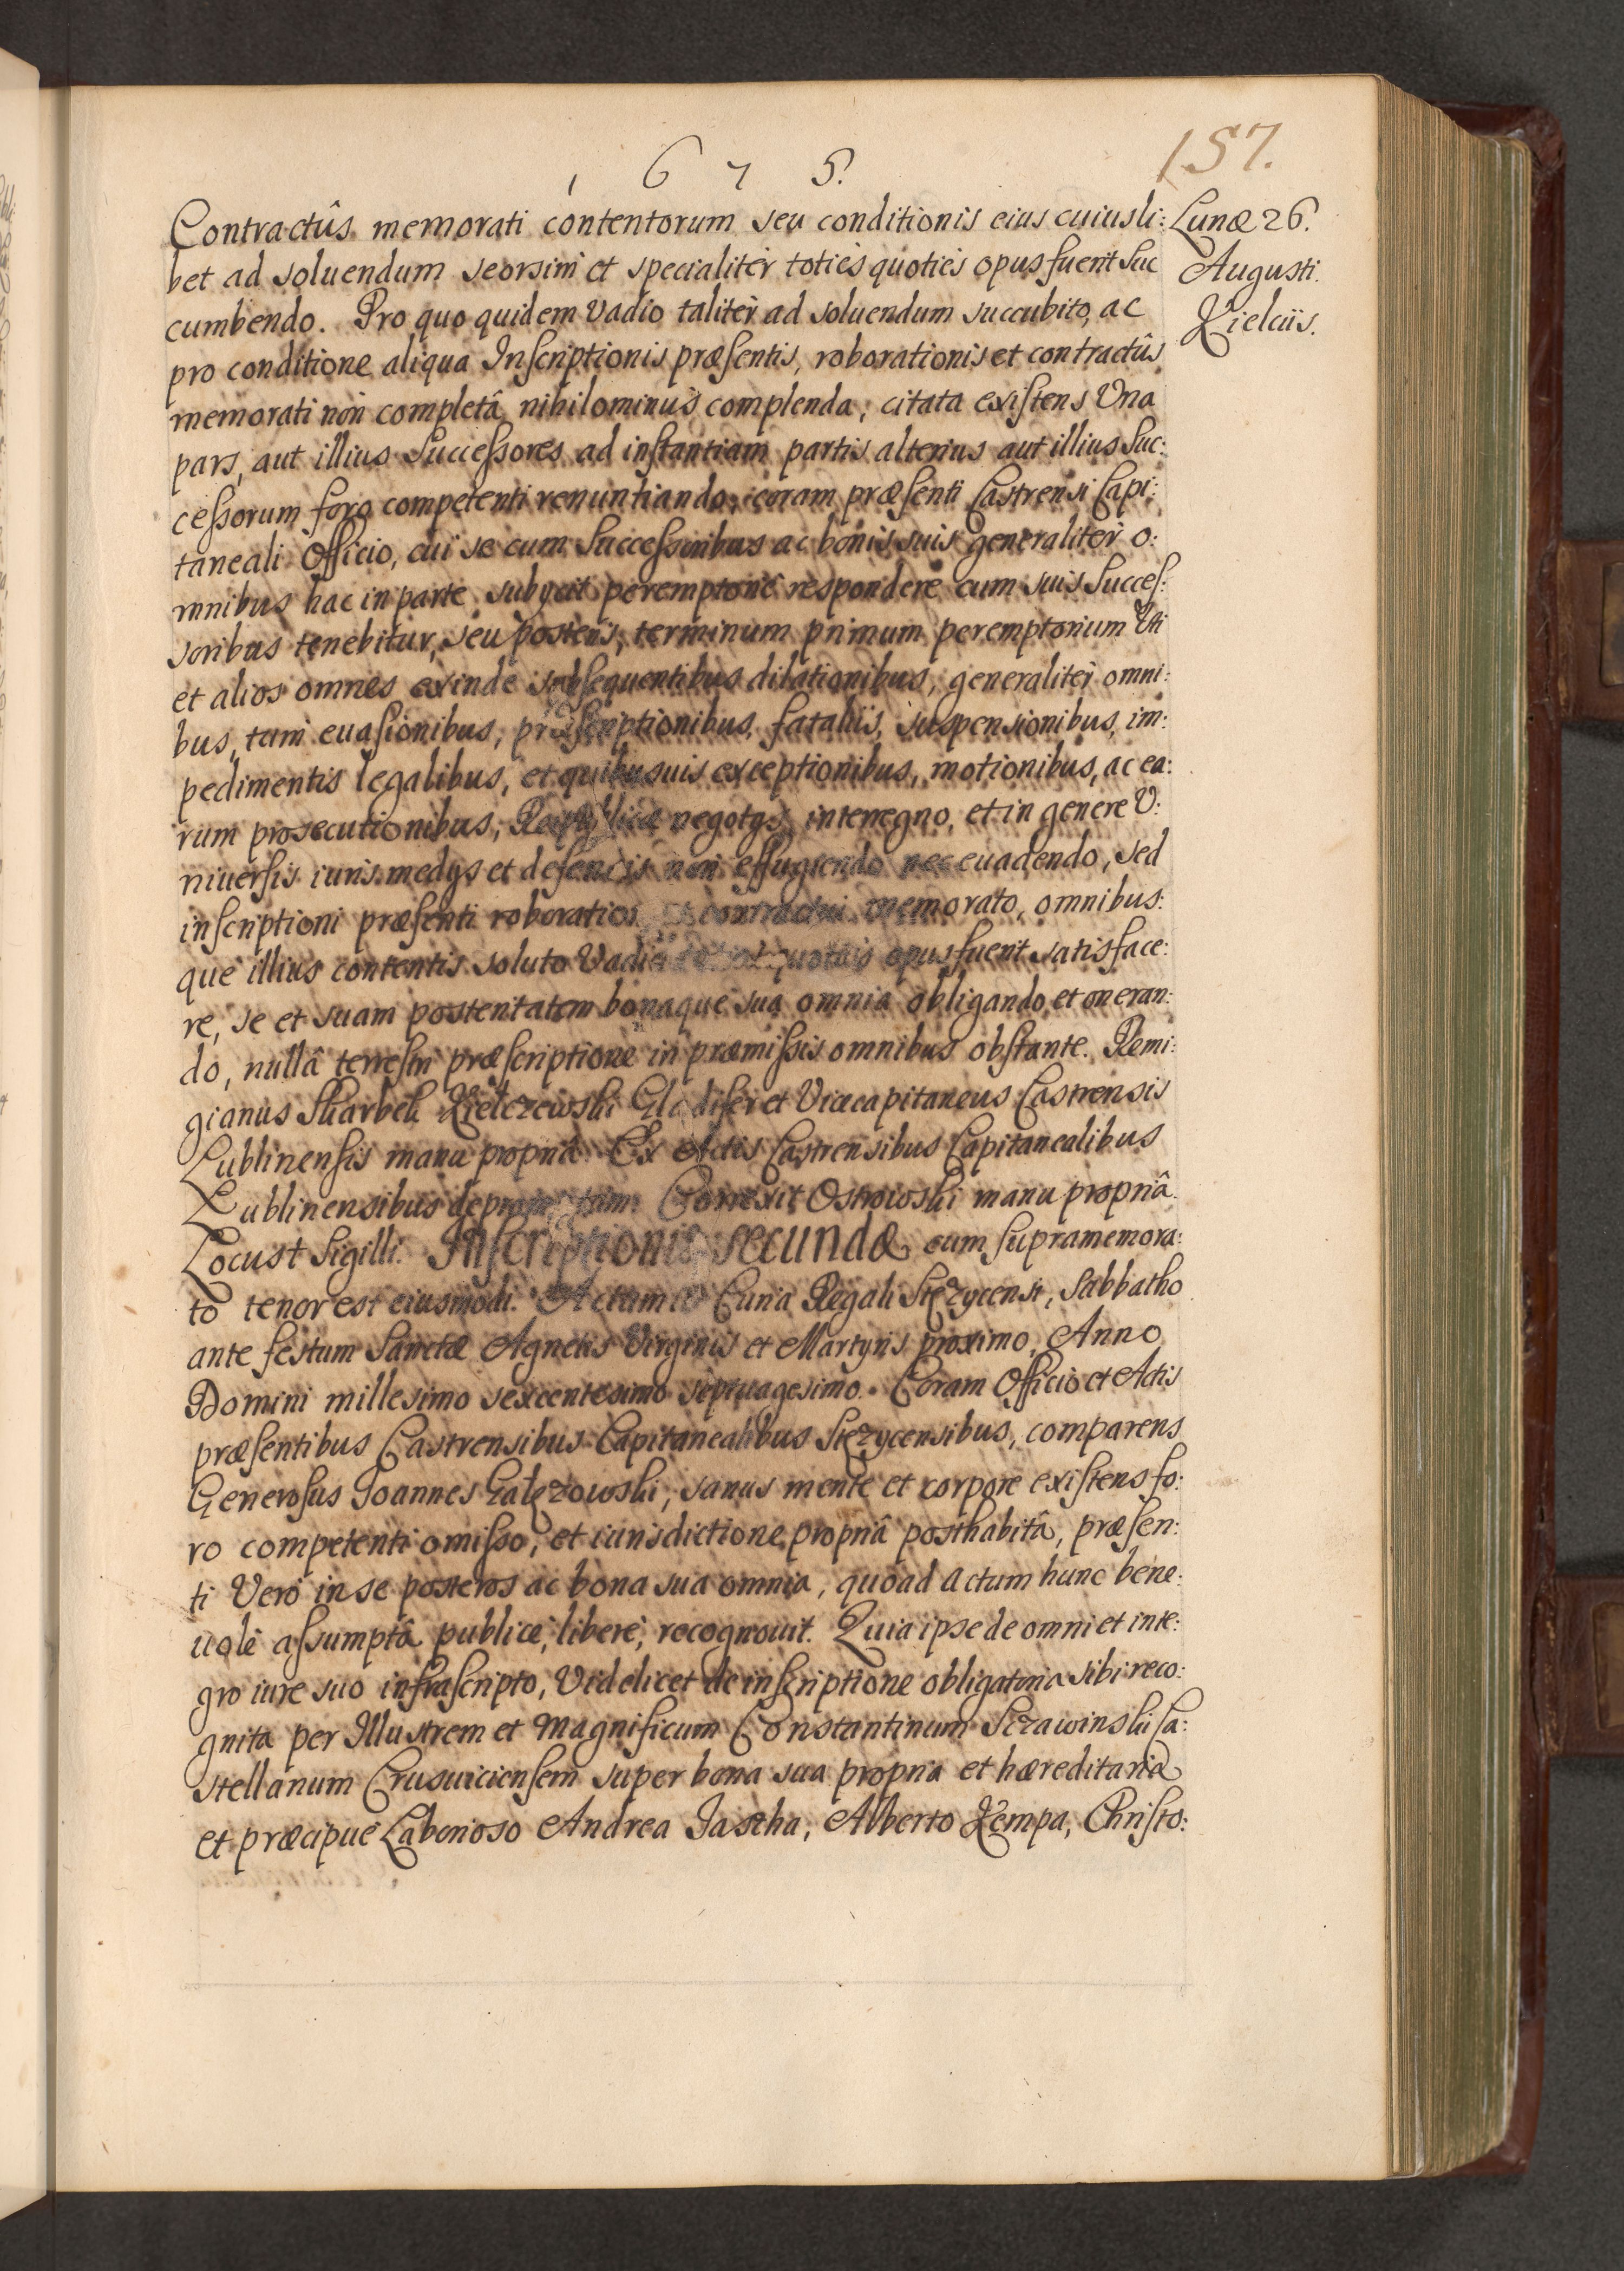 1675.
157.
Lunæ 26.
Augusti.
Kielciis.
Contractûs memorati contentorum seu conditionis eius cuiusli:
bet ad soluendum seorsim et specialitèr toties quoties opus fuerit suc
cumbendo. Pro quo quidem Vadio talitèr ad soluendum succubito, ac
pro conditione aliqua Inscriptionis præsentis, roborationis et contractûs
memorati non completâ nihilominus complenda, citata existens Una
pars, aut illius Successores ad instantiam partis alterius aut illius Suc:
cessorum foro competenti renuntiando, coram præsenti Castrensi Capi:
taneali Officio, cui se cum Successoribus ac bonis suis generalitèr o:
mnibus hac in parte subycit peremptoriè respondere cum suis Succes:
soribus tenebitur, seu posteris, terminum primum peremptorium Uti
et alios omnes exinde subsequentibus dilationibus, generalitèr omni:
bus, tum euasionibus, præscriptionibus, fataliis, suspensionibus, im:
pedimentis legalibus, et quibusuis exceptionibus, motionibus, ac ea:
rum prosecutionibus, Reipublicæ negotys, interregno, et in genere V:
niuersis iuris medys et defensis non effugiendo nec euadendo, sed
inscriptioni præsenti contractui memorato, omnibus:
que illius contentis soluto Vadio quoties opus fuerit satisface:
re, se et suam posteritatem bonaque sua omnia obligando et oneran:
do, nullâ terrestri præscriptione in præmissis omnibus obstante. Remi:
gianus Skarbek Kielczewski Gladifer et Vicecapitaneus Castrensis
Lublinensis manu propriâ. Ex Actis Castrensibus Capitanealibus
Lublinensibus depromptum. Correxit Ostrowski manu propriâ.
Locust Sigilli. Inscriptionis secundæ cum supramemora:
to tenor est eiusmodi. Actum in Curia Regali Stęzycensi, Sabbatho
ante festum Sanctæ Agnetis Virginis et Martyris proximo, Anno
Domini millesimo sexcentesimo septuagesimo. Coram Officio et Actis
præsentibus Castrensibus Capitanealibus Stęzycensibus, comparens
Generosus Joannes Gałęzowski, sanus mente et corpore existens fo:
ro competenti omisso, et iurisdictione propriâ posthabitâ, præsen:
ti Verò in se posteros ac bona sua omnia, quoad actum hunc bene:
uolè assumptâ publicè, liberè, recognouit. Quia ipse de omni et inte:
gro iure suo infrascripto, Videlicet de inscriptione obligatoria sibi reco:
gnita per Illustrem et Magnificum Constantinum Szawinski Ca:
stellanum Crusuiciensem super bona sua propria et hæreditaria
et præcipuè Laborioso Andrea Jastha, Alberto Kempa, Christo: